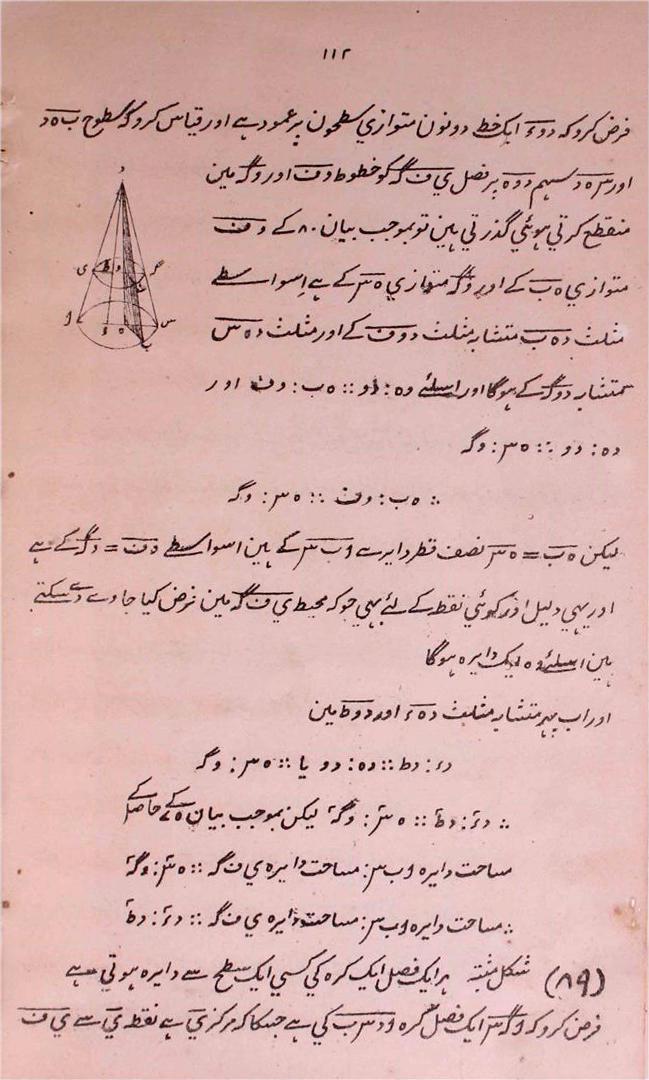 ۱۱۲
فرض کرو کہ د و ء ایک خط دونون متوازي سطحون پر عمود ہے اور قیاس کرو کہ سطوح ب ہ د
اور س ہ د سہیم د و ہ پر فصل ي ف گ کو خطوط و ف اور و گ مین
منقطع کرتي ہوئي گذرتي ہین تو بموجب بیان ۸۰ کے و ف
متوازي ہ ب کے اور و گ متوازي ہ س کے ہے اِسواسطے
مثلث د ہ ب متشابہ مثلث د و ف کے اور مثلث د ہ س
متشابہ د و گ کے ہوگا اور اسلئے د ہ : د و :: ہ ب : و ف اور
د ہ : د و :: ہ س : و گ
∴ ہ ب : و ف :: ہ س : و گ
لیکن ہ ب = ہ س نصف قطر دایرے ا ب س کے ہین اسواسطے و ف = و گ کے ہے
اور یہي دلیل اور کوئي نقطہ کے لئے بہي جو کہ محیط ي ف گ مین فرض کیا جاوے دے سکتے
ہین اسلئے وہ ایک دایرہ ہوگا
اور اب بہ متشابہ مثلث د ہ ء اور د و ط مین
د ء : د ط :: د ہ : د و یا :: ہ س : و گ
∴ د ء٢ : د ط٢ :: ہ س٢ : و گ٢ لیکن بموجب بیان ۷۵ کے حاصل کے
مساحت دایرہ ا ب س : مساحت دایرہ ي ف گ :: ہ س٢ : و گ٢
∴ مساحت دایرہ ا ب س : مساحت دایرہ ي ف گ :: د ء٢ : د ط٢
(۸۹) شکل مثبتہ ہر ایک فصل ایک کرہ کي کسي ایک سطح سے دایرہ ہوتي ہے
فرض کرو کہ ا گ س ایک فصل کرہ ا د س ب کي ہے جسکا کہ مرکز ي ہے نقطہ ي سے ي ف